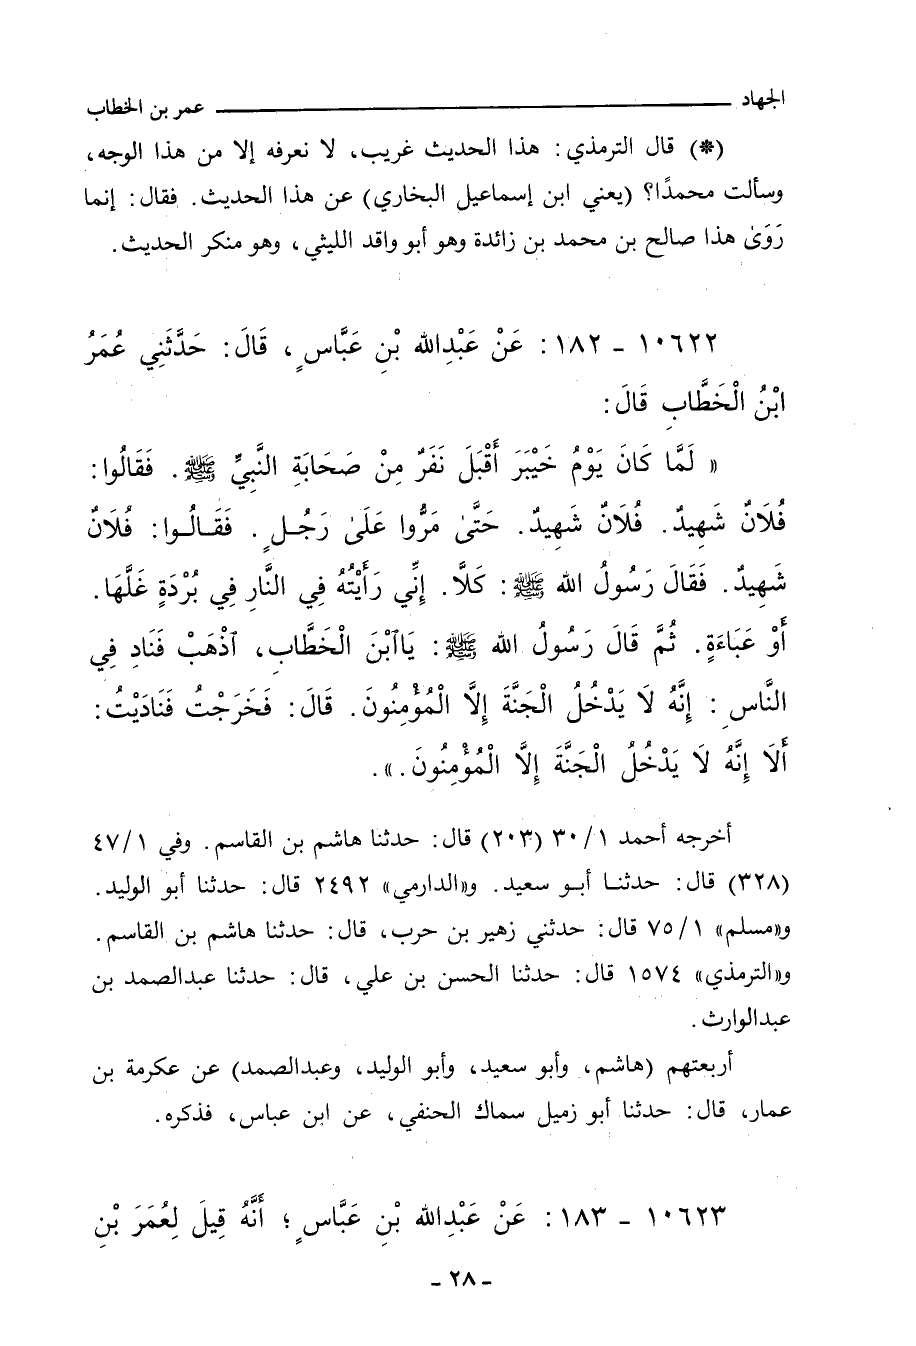 الجهاد ــــــــــــــــــــ عمر بن الخطاب
(*) قال الترمذي: هذا الحديث غريب، لا نعرفه إلا من هذا الوجه،
وسألت محمدًا؟ (يعني ابن إسماعيل البخاري) عن هذا الحديث. فقال: إنما
رَوَىٰ هذا صالح بن محمد بن زائدة وهو أبو واقد الليثي، وهو منكر الحديث.
١٠٦٢٢ - ١٨٢: عَنْ عَبْدِالله بْنِ عَبَّاسٍ، قَالَ: حَدَّثَنِي عُمَرُ
ابْنُ الْخَطَّابِ قَالَ:
« لَمَّا كَانَ يَوْمُ خَيْبَرَ أَقْبَلَ نَفَرٌ مِنْ صَحَابَةِ النَّبِيِّ ﷺ. فَقَالُوا:
فُلَانٌ شَهِيدٌ. فُلَانٌ شَهِيدٌ. حَتَّىٰ مَرُّوا عَلَىٰ رَجُلٍ. فَقَالُوا: فُلَانٌ
شَهِيدٌ. فَقَالَ رَسُولُ الله ﷺ: كَلَّا. إِنِّي رَأَيْتُهُ فِي النَّارِ فِي بُرْدَةٍ غَلَّهَا.
أَوْ عَبَاءَةٍ. ثُمَّ قَالَ رَسُولُ الله ﷺ: يَاآبْنَ الْخَطَّابِ، آذْهَبْ فَنَادِ فِي
النَّاسِ: إِنَّهُ لَا يَدْخُلُ الْجَنَّةَ إِلَّا الْمُؤْمِنُونَ. قَالَ: فَخَرَجْتُ فَنَادَيْتُ:
أَلَا إِنَّهُ لَا يَدْخُلُ الْجَنَّةَ إِلَّا الْمُؤْمِنُونَ.».
أخرجه أحمد ١/ ٣٠ (٢٠٣) قال: حدثنا هاشم بن القاسم. وفي ١/ ٤٧
(٣٢٨) قال: حدثنا أبو سعيد. و«الدارمي» ٢٤٩٢ قال: حدثنا أبو الوليد.
و«مسلم» ١/ ٧٥ قال: حدثني زهير بن حرب، قال: حدثنا هاشم بن القاسم.
و«الترمذي» ١٥٧٤ قال: حدثنا الحسن بن علي، قال: حدثنا عبدالصمد بن
عبدالوارث.
أربعتهم (هاشم، وأبو سعيد، وأبو الوليد، وعبدالصمد) عن عكرمة بن
عمار، قال: حدثنا أبو زميل سماك الحنفي، عن ابن عباس، فذكره.
١٠٦٢٣ - ١٨٣: عَنْ عَبْدِالله بْنِ عَبَّاسٍ؛ أَنَّهُ قِيلَ لِعُمَرَ بْنِ
- ٢٨ -